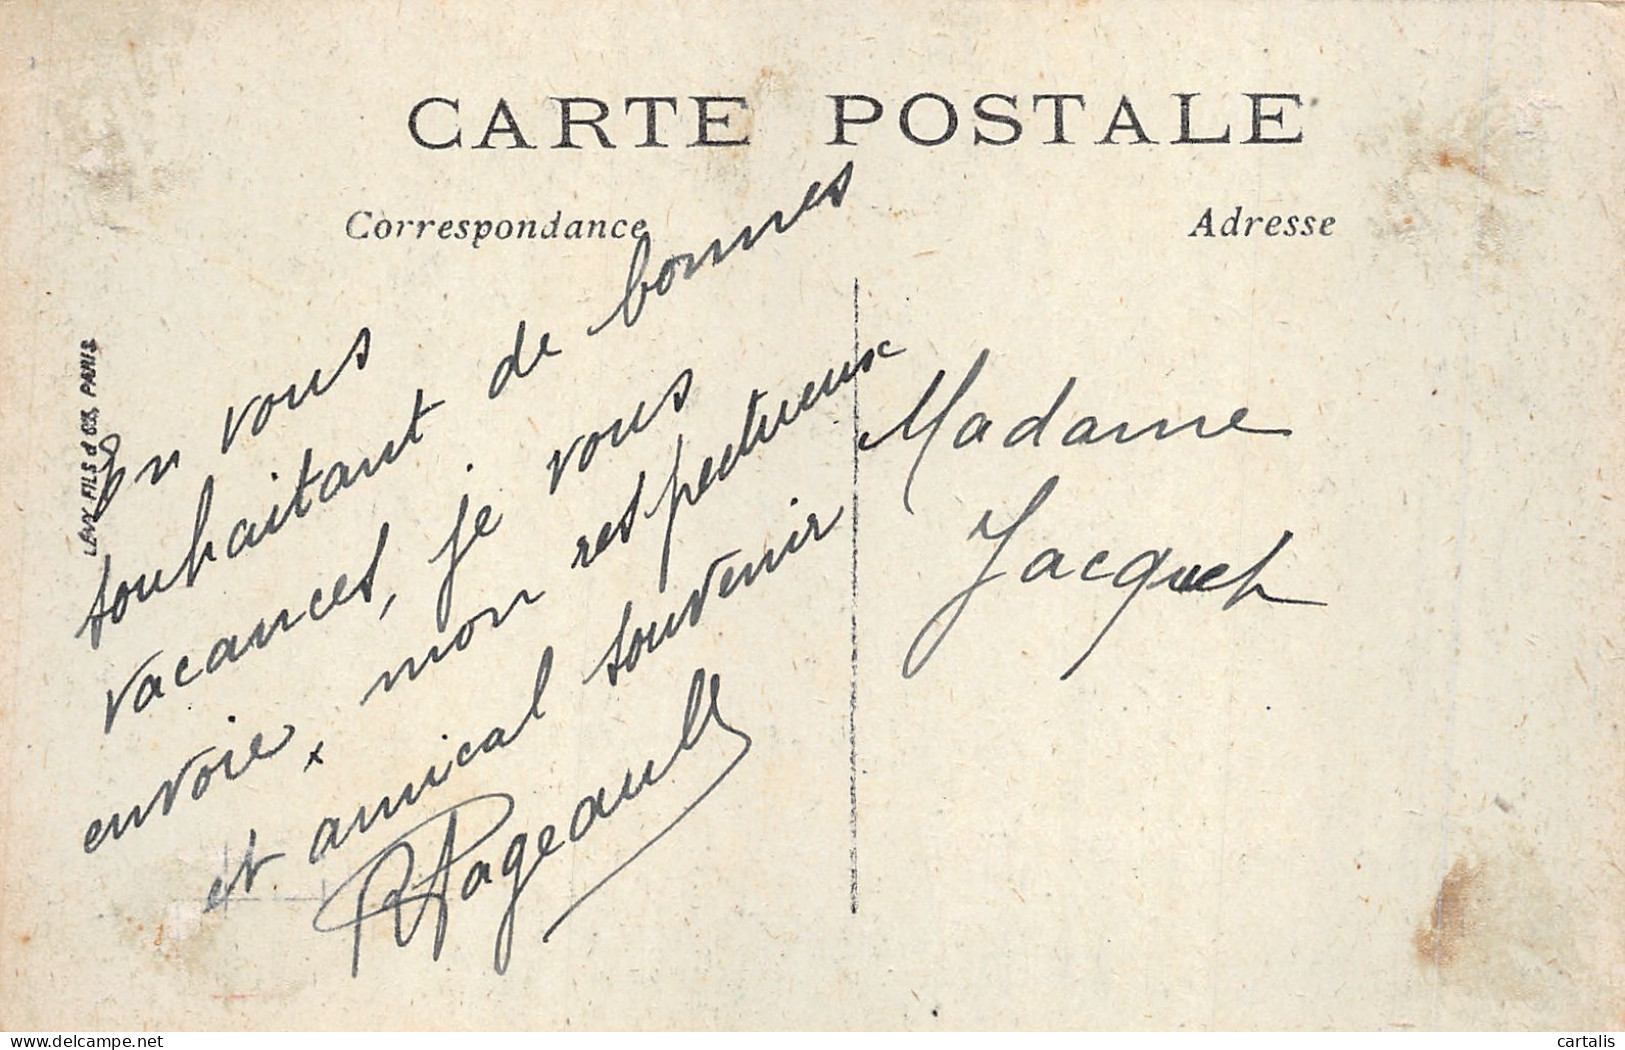 CARTE POSTALE
Correspondance
Adresse
LÉVY FILS & Cie, PARIS
En vous
souhaitant de bonnes
vacances, je vous
envoie, mon respectueux
et amical souvenir
Pageault
Madame
Jacquet
www.delcampe.net
cartalis